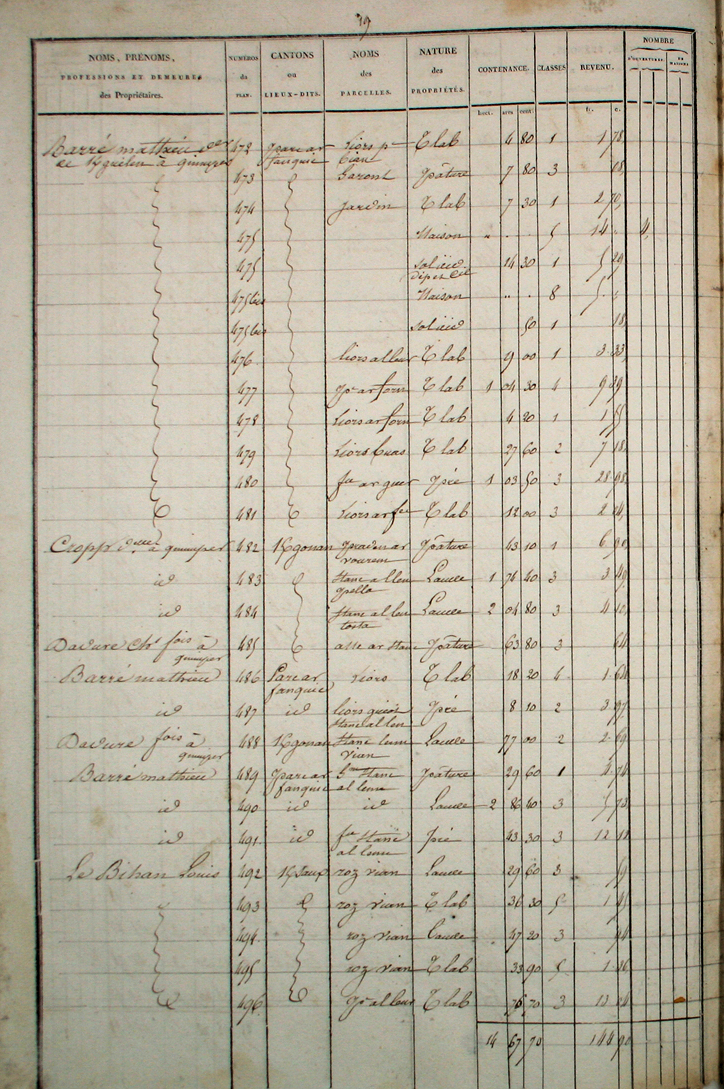 19
NOMS, PRÉNOMS, PROFESSIONS ET DEMEURES des Propriétaires. NUMÉROS du PLAN. CANTONS ou LIEUX-DITS. NOMS des PARCELLES. NATURE des PROPRIÉTÉS. CONTENANCE. CLASSES REVENU. NOMBRE D'OUVERTURES DE MAISONS
hect. ares cent. fr. c.
Barré mathieu 472 parc ar fanquic Liors T lab 4 80 1 1 78
à quimper
473 Garent pâture 7 80 3 18
474 jardin T lab 7 30 1 2 70
475 Maison 5 14 4
475 14 30 1 5 29
475 bis Maison 8 5
475 bis 50 1 18
476 liors al leur T lab 9 00 1 3 33
477 pr ar forn T lab 1 04 30 4 9 39
478 Liors ar forn T lab 4 20 1 1 55
479 Liors T lab 27 60 2 7 18
480 fn ar guer pré 1 03 50 3 28 98
481 Liors ar T lab 12 00 3 2 04
Cropp dlle à quimper 482 Kgonan pâture 43 10 1 6 90
vourem
id 483 Stanc al len Lande 1 74 40 3 3 49
pella
id 484 Stanc al len Lande 2 04 80 3 4 10
tosta
Davure Chs fois à quimper 485 ar Stanc pâture 63 80 3 64
Barré mathieu 486 Parc ar fanquic Liors T lab 18 20 4 1 64
id 487 id liors pré 8 10 2 3 97
Stanc al len
Davure fois à quimper 488 Kgonan Stanc lenn vian Lande 77 00 2 2 69
Barré mathieu 489 parc ar fanquic Stanc al lenn pâture 29 60 1 4 74
id 490 id id Lande 2 86 40 3 5 73
id 491 id fn Stanc al lenn pré 43 30 3 12 12
Le Bihan Louis 492 roz vian Lande 29 60 3 59
493 roz vian T lab 36 30 5 1 45
494 roz vian Lande 47 20 3 94
495 roz vian T lab 33 90 5 1 36
496 pr al leur T lab 76 70 3 13 04
14 67 70 144 90